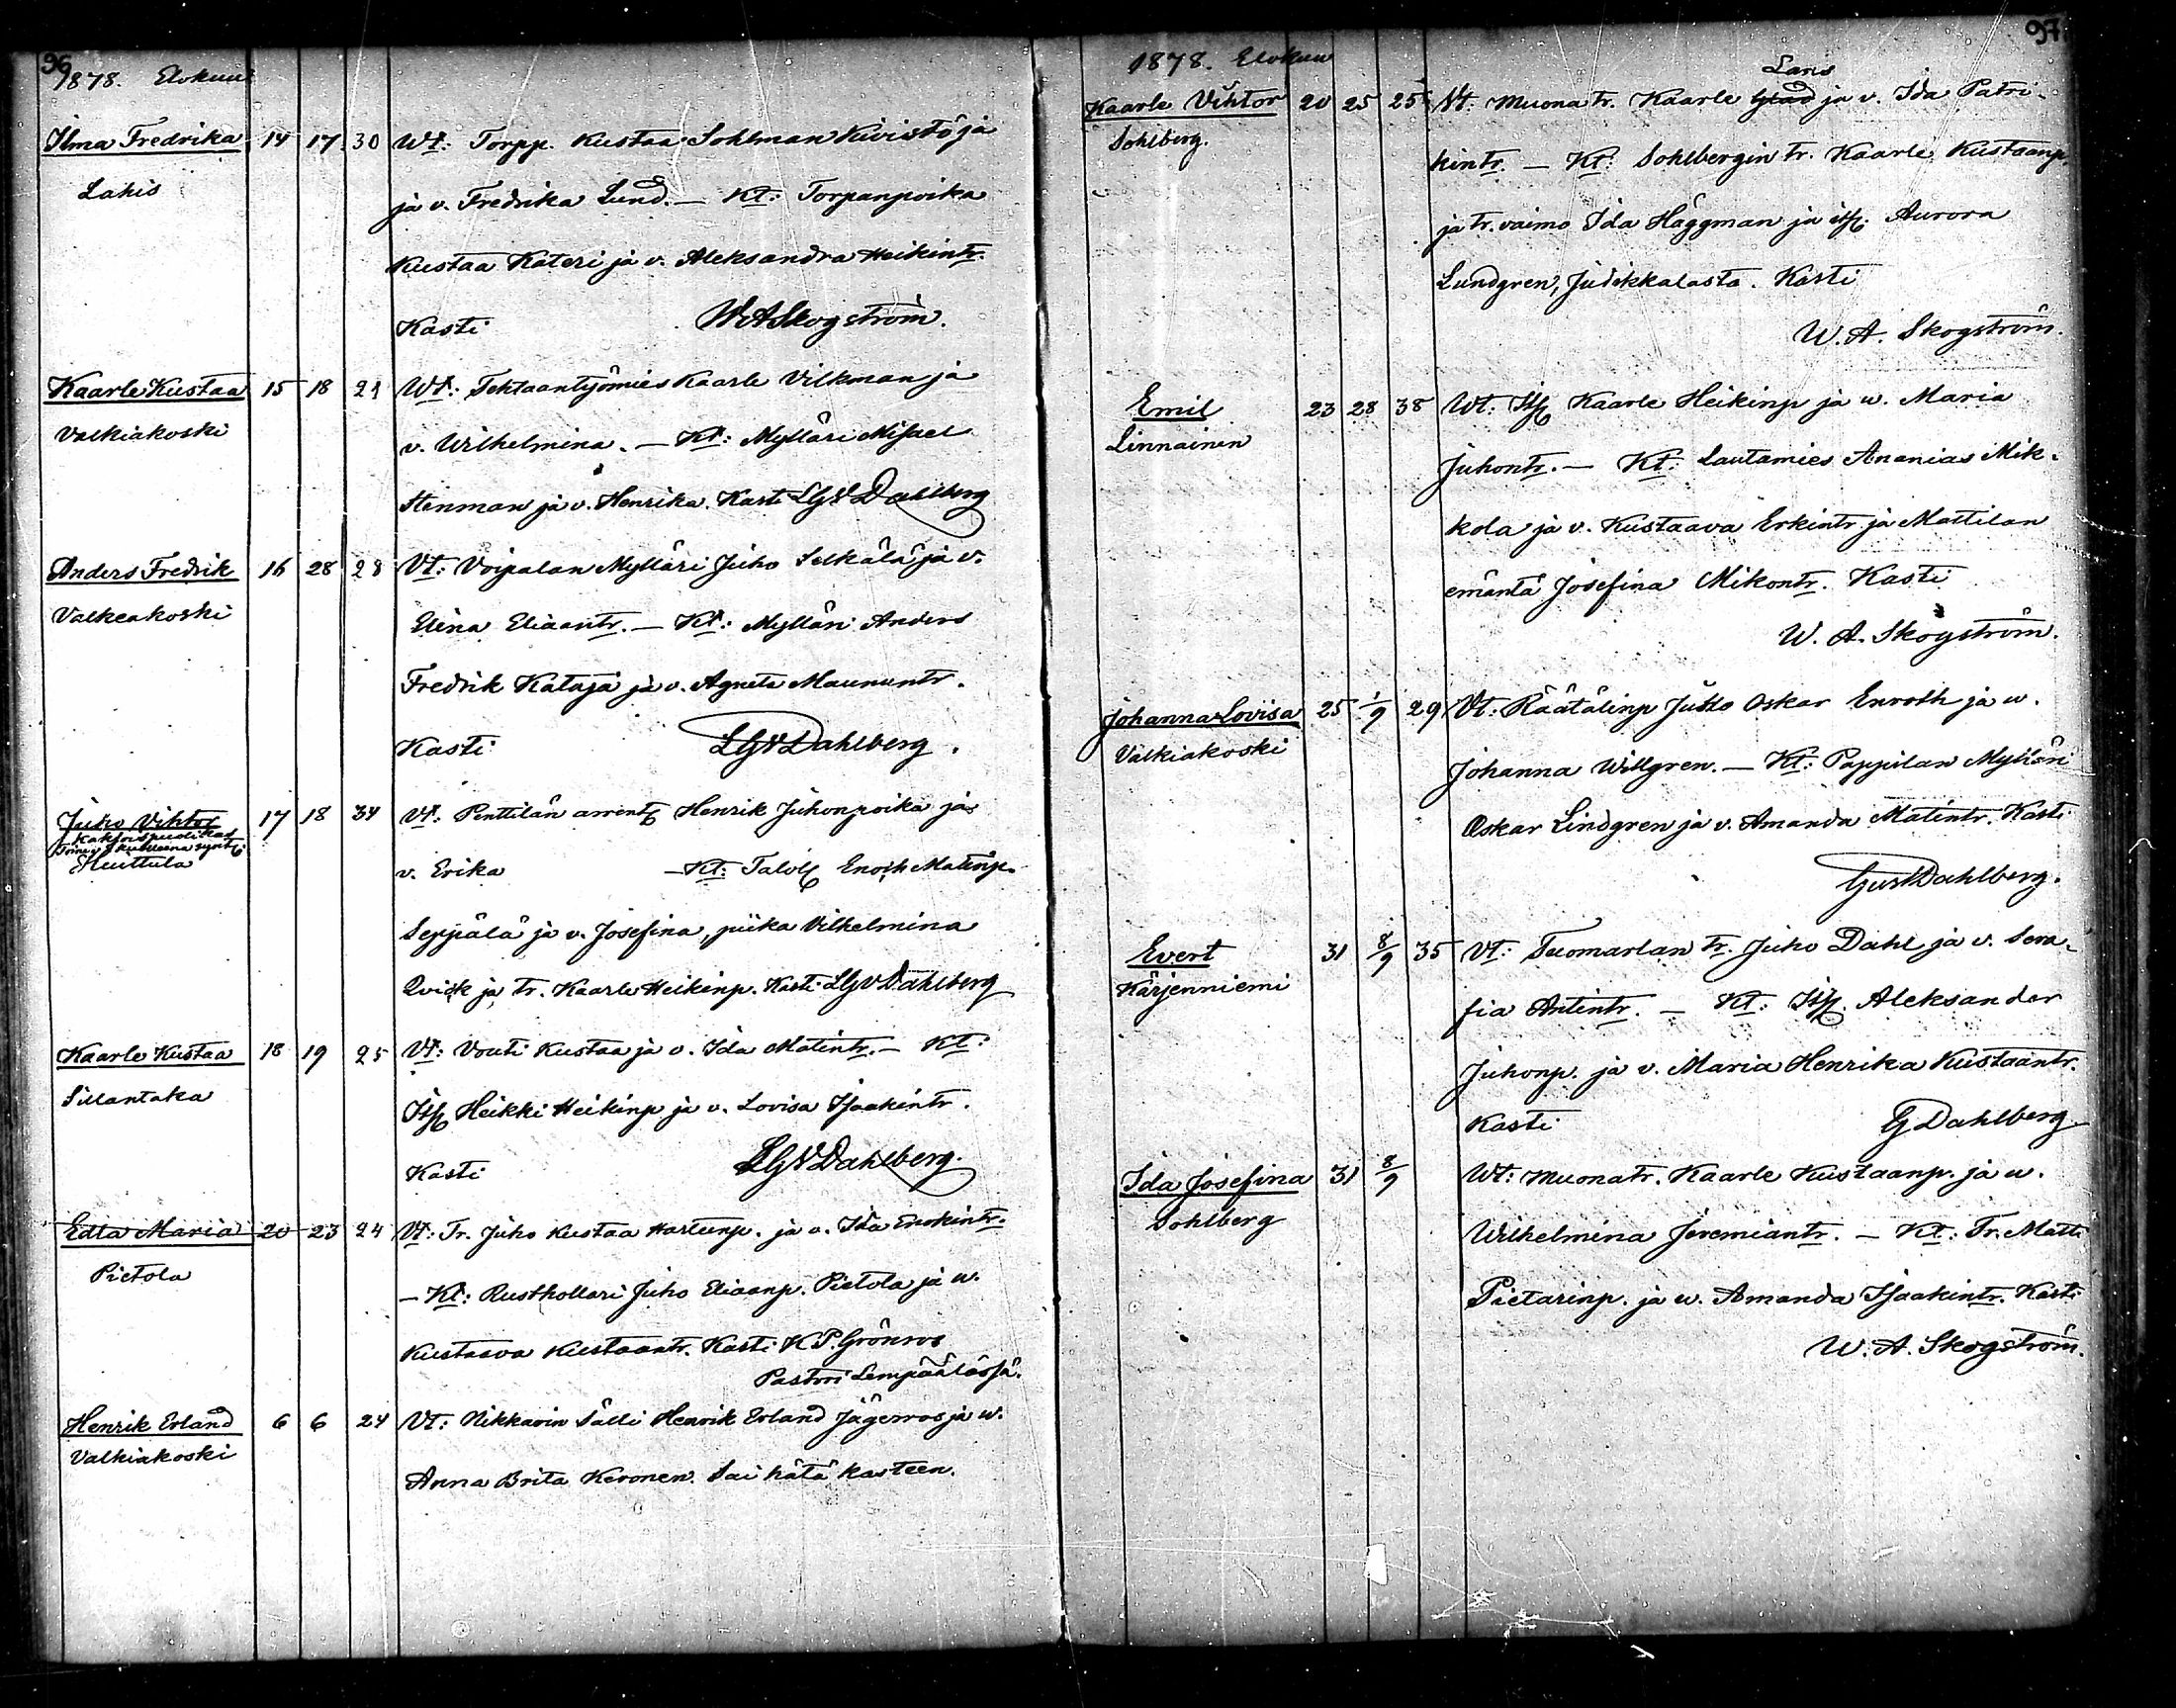 96
1878. Elokuu
Ilma Fredrika 14 17 30 Wt: Torpp. Kustaa Sohlman Kivistö ja
Lahis
ja v. Fredrika Lund. — Kt: Torpanpoika
Kustaa Kateri ja v. Aleksandra Heikintr.
Kasti W A Skogström.
Kaarle Kustaa 15 18 21 Wt: Tehtaantyömies Kaarle Vilkman ja
Valkiakoski
v. Wilhelmina. — Kt: Mylläri Misael
Stenman ja v. Henrika. Kasti LGV Dahlberg
Anders Fredrik 16 28 28 Vt: Voipalan Mylläri Juho Selkälä ja v.
Valkeakoski
Elina Eliaantr. — Kt: Mylläri Anders
Fredrik Kataja ja v. Agneta Maununtr.
Kasti LGVDahlberg.
Juho Vihtor 17 18 34 Vt: Penttilän arrent. Henrik Juhonpoika ja
Kaksoispuolikas
Toinen kuolleena synt.
Huittula
v. Erika — Kt: Taloll. Enoch Matinp.
Seppälä ja v. Josefina, piika Vilhelmina
Qvick ja tr. Kaarle Heikinp. Kasti LGVDahlberg
Kaarle Kustaa 18 19 25 Vt: Vouti Kustaa ja v. Ida Matintr. — Kt:
Sillantaka
Its. Heikki Heikinp ja v. Lovisa Isaakintr.
Kasti LGVDahlberg.
Edla Maria 20 23 24 Vt: Tr. Juho Kustaa Martinp. ja v. Ida Enokintr.
Pietola
— Kt: Rusthollari Juho Eliaanp. Pietola ja w.
Kustaava Kustaantr. Kasti K P. Grönros
Pastori Lempäälässä.
Henrik Erland 6 6 24 Vt: Nikkarin Sälli Henrik Erland Jägerros ja w.
Valkiakoski
Anna Brita Keronen. Sai hätä kasteen.
97
1878. Elokuu
Lans
Kaarle Vihtor 20 25 25 Vt: Muona tr. Kaarle Glad ja v. Ida Patri-
Sohlberg.
kintr. — Kt: Sohlbergin tr. Kaarle Kustaanp
ja tr. vaimo Ida Häggman ja its. Aurora
Lundgren, Judikkalasta. Kasti
W. A. Skogström.
Emil 23 28 38 Wt: Its. Kaarle Heikinp ja w. Maria
Linnainen
Juhontr. — Kt: Lautamies Ananias Mik-
kola ja v. Kustaava Erkintr ja Mattilan
emäntä Josefina Mikontr. Kasti
W. A. Skogström.
Johanna Lovisa 25 1/9 29 Vt: Räätälinp Juho Oskar Enroth ja w.
Valkiakoski
Johanna Willgren. — Kt: Pappilan Mylläri
Oskar Lindgren ja v. Amanda Matintr. Kasti
GusDahlberg.
Evert 31 8/9 35 Vt: Tuomarlan tr. Juho Dahl ja v. Sera-
Kärjenniemi
fia Antintr. — Kt: Its. Aleksander
Juhonp. ja v. Maria Henrika Kustaantr.
Kasti G Dahlberg
Ida Josefina 31 8/9 Wt: Muonatr. Kaarle Kustaanp. ja w.
Sohlberg
Wilhelmina Jeremiantr. — Kt: Tr. Matti
Pietarinp. ja w. Amanda Isaakintr. Kasti
W. A. Skogström.